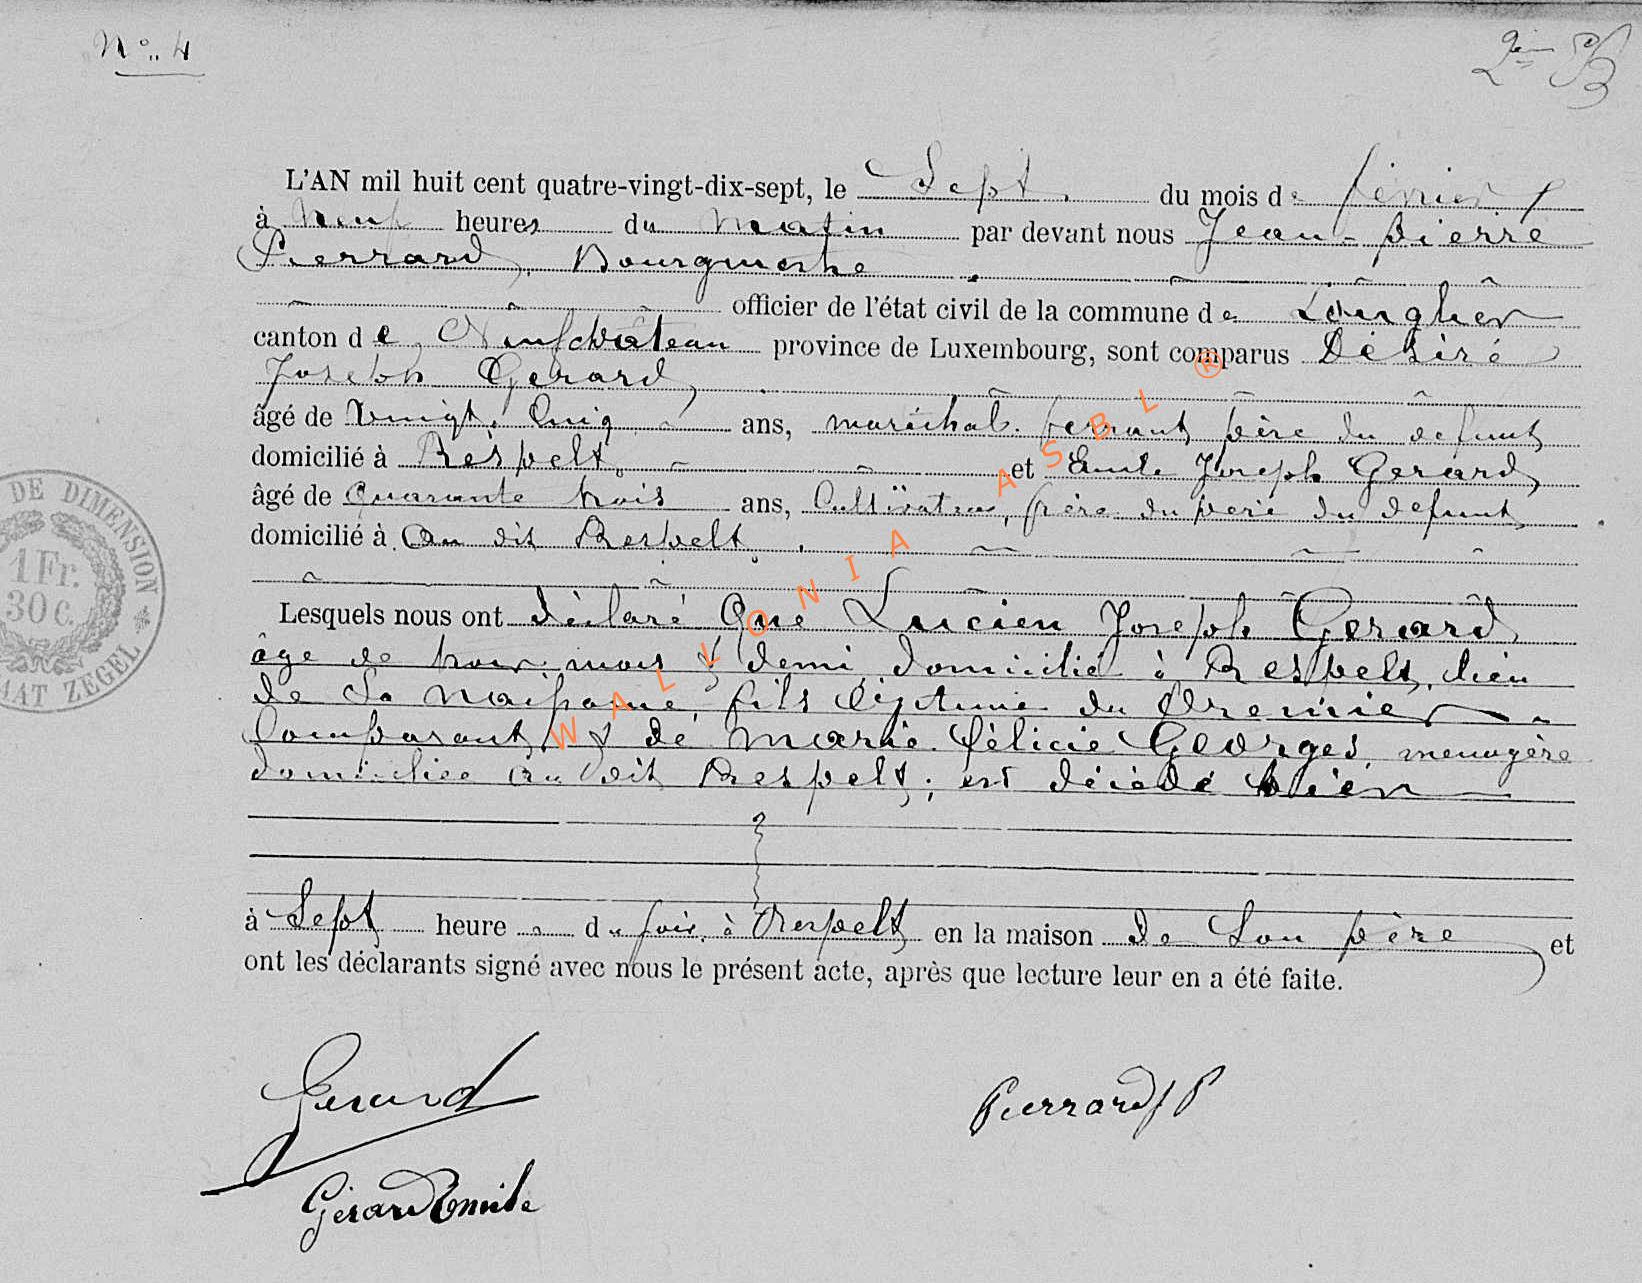 N° 4
2ème
L'AN mil huit cent quatre-vingt-dix-sept, le Sept du mois de février
à Neuf heures du matin par devant nous Jean-Pierre
Pierrard, Bourgmestre
officier de l'état civil de la commune de Longlier
canton de Neufchâteau province de Luxembourg, sont comparus Désiré
Joseph Gerard,
âgé de Vingt Cinq ans, maréchal ferrant père du défunt
domicilié à Respelt et Emile Joseph Gerard,
âgé de Quarante trois ans, Cultivateur, frère du père du defunt
domicilié à Au dit Respelt
Lesquels nous ont déclaré Que Lucien Joseph Gerard
âge de trois mois & demi, domicilié à Respelt, lieu
de Sa naissance, fils légitime du Premier
Comparant & de Marie Félicie Georges, menagère
domiciliée au dit Respelt; est décédé hier
à Sept heure du soir à Respelt en la maison de Son père et
ont les déclarants signé avec nous le présent acte, après que lecture leur en a été faite.
Gerard
Pierrard J P
Gérard Emile
DE DIMENSION
1 Fr.
30 c.
ZEGEL
WALLONIA ASBL ®